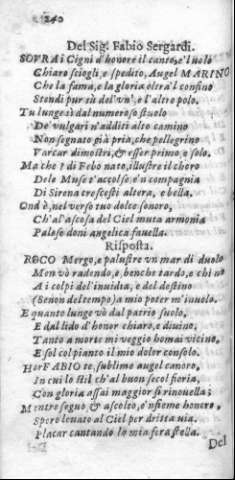 240
Del Sig. Fabio Sergardi.
SOVRA i Cigni d'honore il canto, e'l uolo
Chiaro sciogli, e spedito, Angel MARINO
Che la fama, e la gloria oltra'l confino
Stendi pur sù del'un', e l'altro polo.
Tu lunge sì dal numeroso stuolo
De' vulgari n'additi alto camino
Non segnato già pria, che pellegrino
Varcar dimostri, & esser primo, e solo.
Ma che? di Febo nato, illustre il choro
Dele Muse t'accolse, e'n compagnia
Di Sirena crescesti altera, e bella.
Ond'è, nel verso tuo dolce sonoro,
Ch'al'ascosa del Ciel muta armonia
Palese doni angelica fauella.
Risposta.
ROCO Mergo, e palustre vn mar di duolo
Men vò radendo, e, benche tardo, e chino
A i colpi del'inuidia, e del destino
(Se non del tempo) a mio poter m'inuolo.
E quanto lunge vò dal patrio suolo,
E dal lido d'honor chiaro, e diuino,
Tanto a morte mi veggio homai vicino,
E sol col pianto il mio dolor consolo.
Hor FABIO te, sublime augel canoro,
In cui lo stil ch'al buon secol fioria,
Con gloria assai maggior si rinouella;
Mentre seguo, & ascolto, e'nsieme honoro,
Spero leuato al Ciel per dritta via,
Placar cantando la mia fera stella.
Del